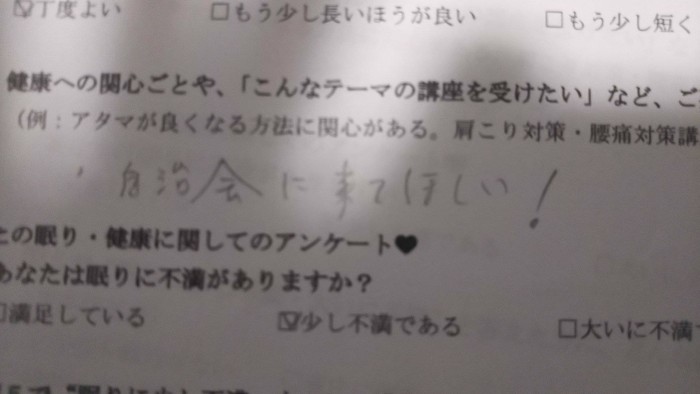 ☑丁度よい　□もう少し長いほうが良い　□もう少し短く
健康への関心ごとや、「こんなテーマの講座を受けたい」など、ご
（例：アタマが良くなる方法に関心がある。肩こり対策・腰痛対策講
自治会に来てほしい！
の眠り・健康に関してのアンケート♥
あなたは眠りに不満がありますか？
□満足している　☑少し不満である　□大いに不満